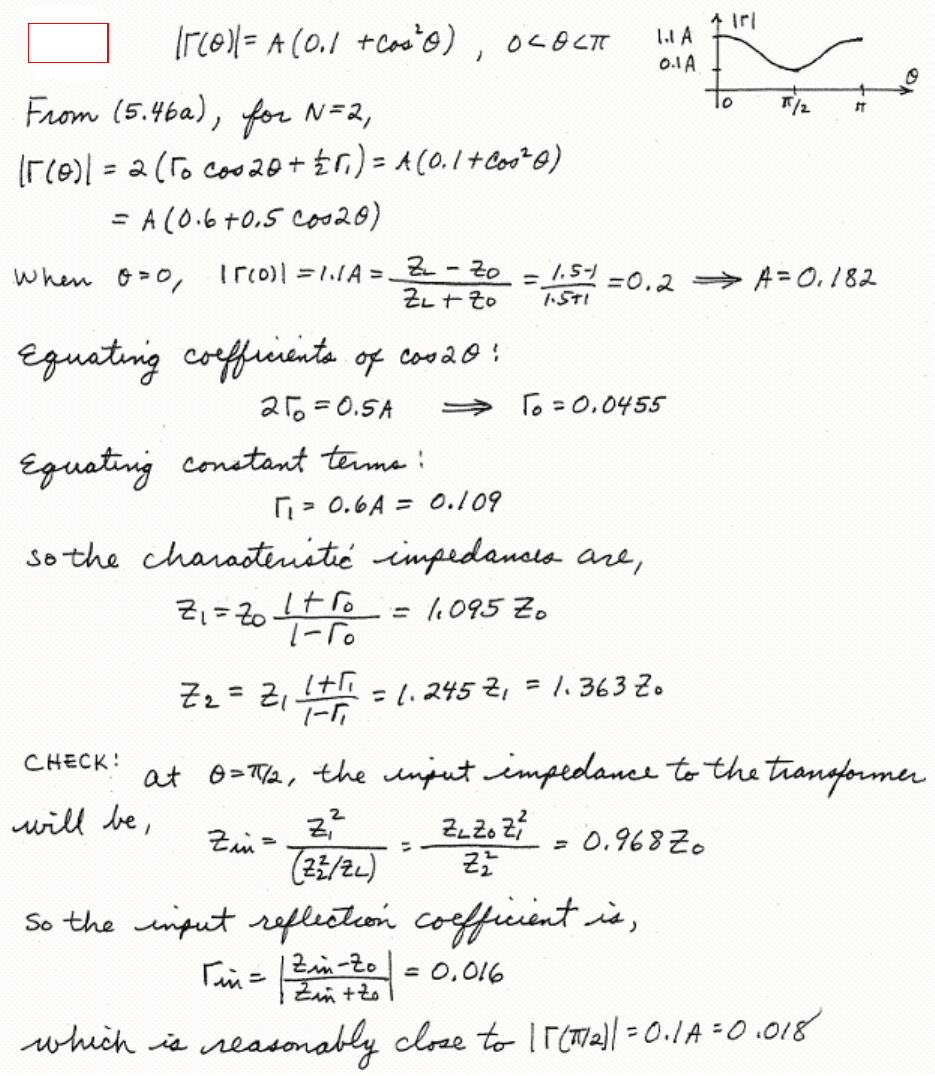 |Γ(θ)| = A(0.1 + cos²θ) , 0<θ<π
|Γ|
1.1 A
0.1 A
0
π/2
π
θ
From (5.46a), for N=2,
|Γ(θ)| = 2(Γ₀ cos2θ + ½Γ₁) = A(0.1 + cos²θ)
= A(0.6+0.5 cos2θ)
When θ=0, |Γ(0)| = 1.1A = (Z_L - Z₀)/(Z_L + Z₀) = (1.5-1)/(1.5+1) = 0.2 ⟹ A=0.182
Equating coefficients of cos2θ:
2Γ₀ = 0.5A ⟹ Γ₀ = 0.0455
Equating constant terms:
Γ₁ = 0.6A = 0.109
So the characteristic impedances are,
Z₁ = Z₀ (1+Γ₀)/(1-Γ₀) = 1.095 Z₀
Z₂ = Z₁ (1+Γ₁)/(1-Γ₁) = 1.245 Z₁ = 1.363 Z₀
CHECK: at θ=π/2, the input impedance to the transformer
will be, Zin = Z₁²/(Z₂²/Z_L) = Z_L Z₀ Z₁²/Z₂² = 0.968 Z₀
So the input reflection coefficient is,
Γin = |(Zin-Z₀)/(Zin+Z₀)| = 0.016
which is reasonably close to |Γ(π/2)| = 0.1A = 0.018 ✓